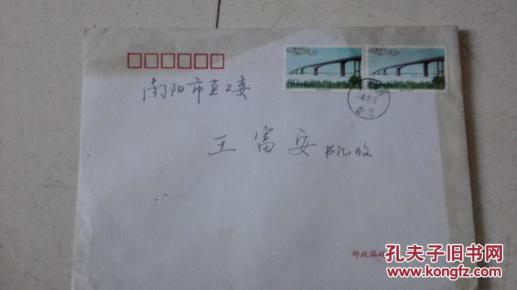 南阳市直工委
王富安 书记收
邮政编
孔夫子旧书网
www.kongfz.com